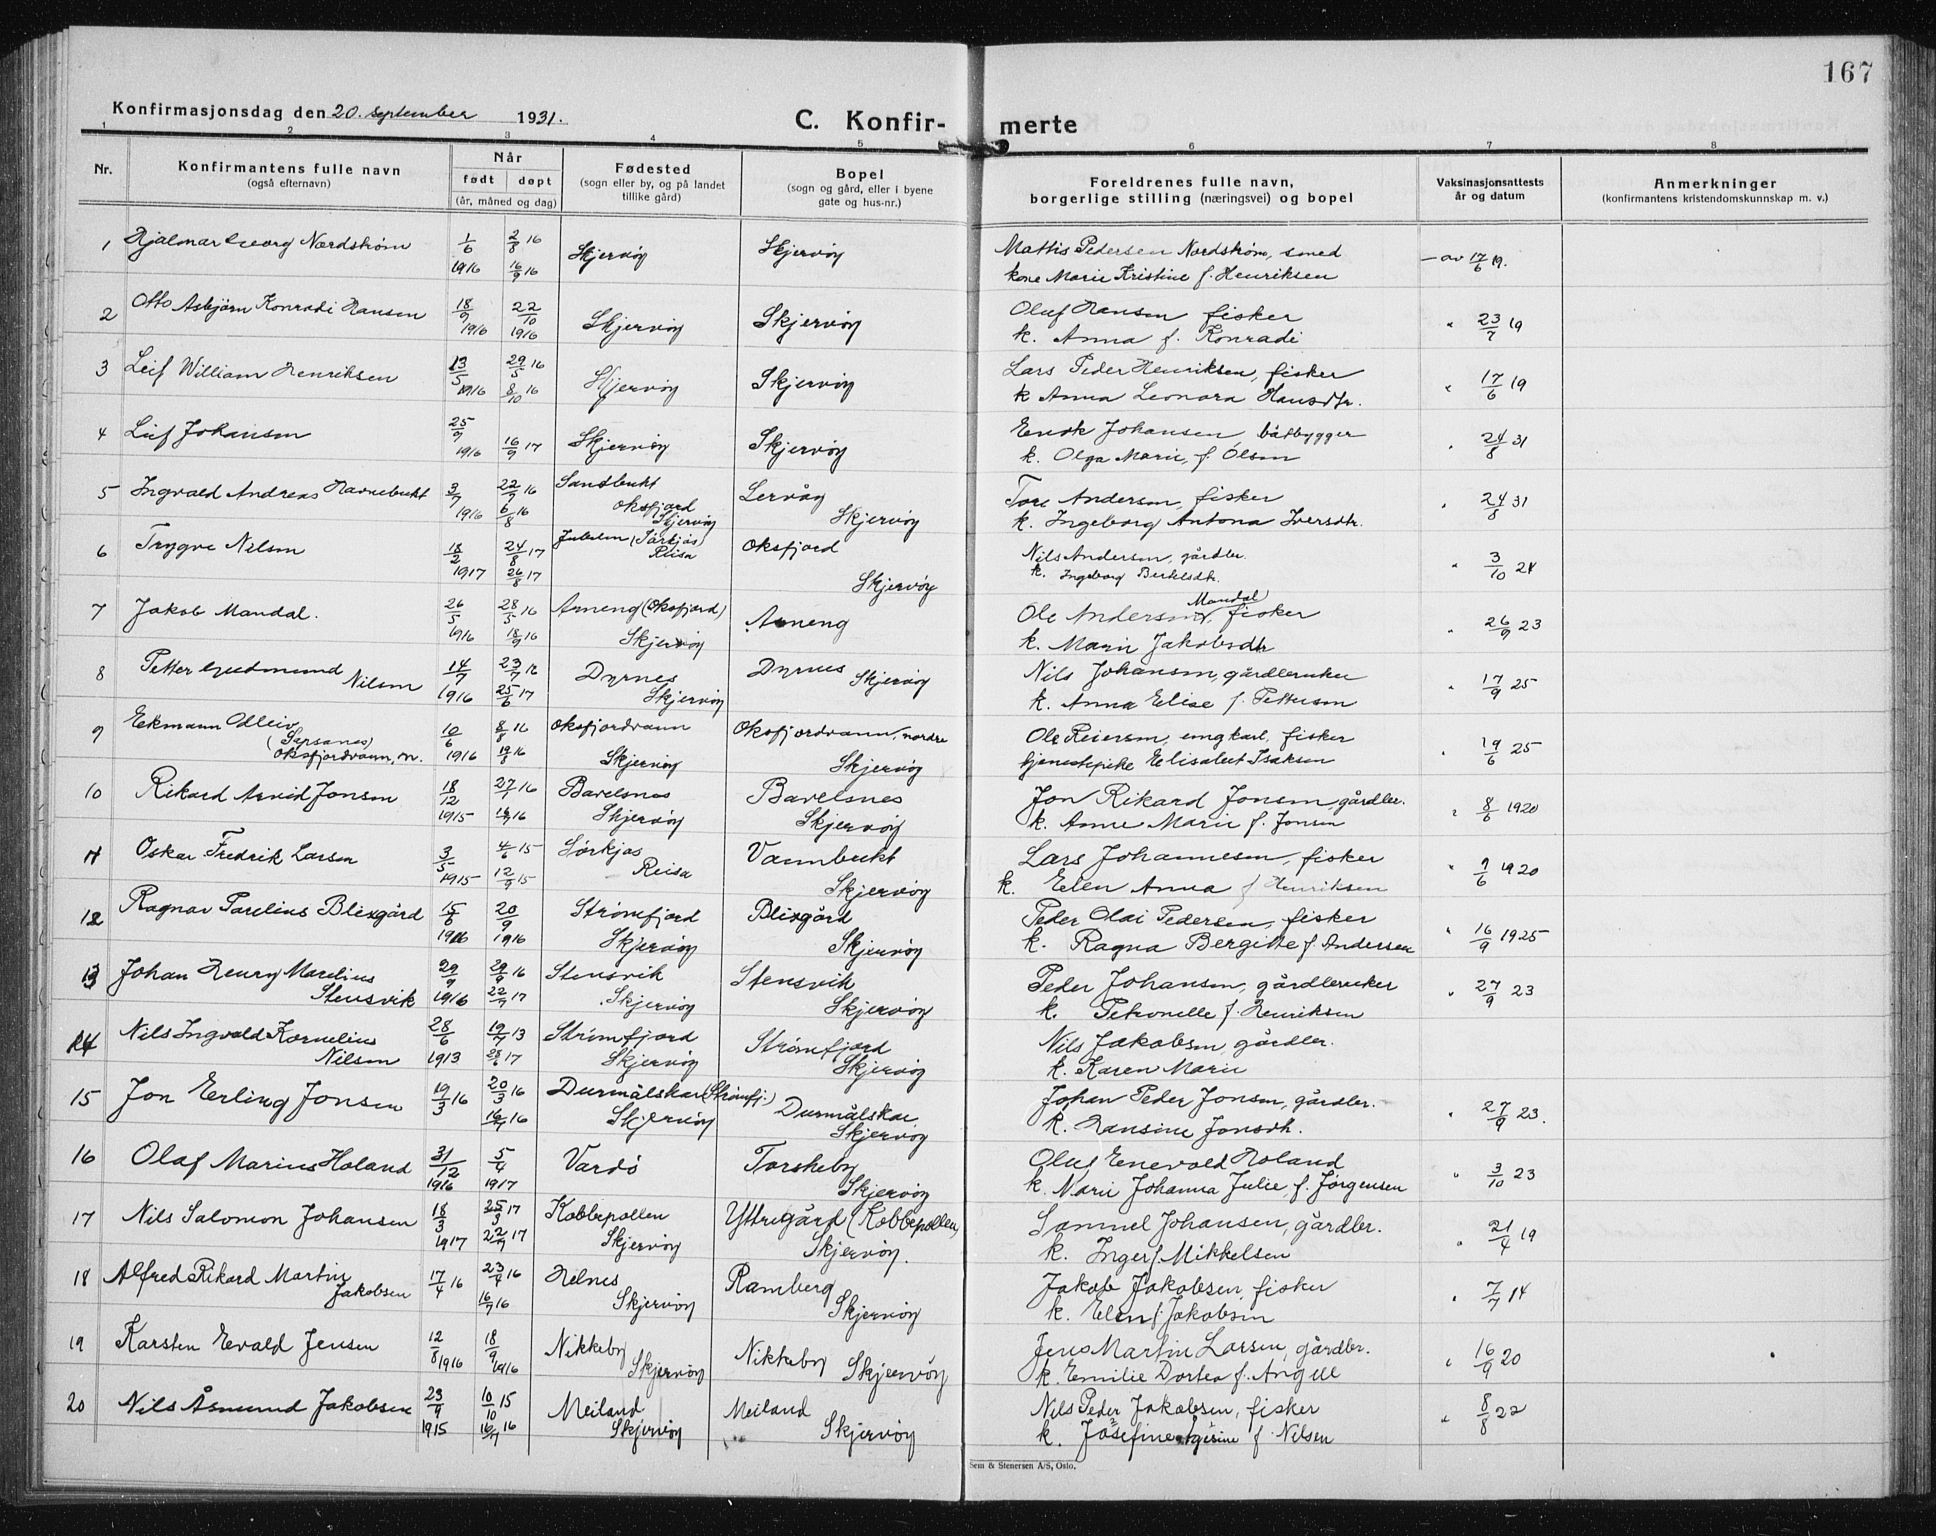 167
Konfirmasjonsdag den 20. september 1931.
C. Konfir- merte
1 2 3 4 5 6 7 8
Nr. Konfirmantens fulle navn (også efternavn) Når født døpt (år, måned og dag) Fødested (sogn eller by, og på landet tillike gård) Bopel (sogn og gård, eller i byene gate og hus-nr.) Foreldrenes fulle navn, borgerlige stilling (næringsvei) og bopel Vaksinasjonsattests år og datum Anmerkninger (konfirmantens kristendomskunnskap m. v.)
1 Hjalmar Georg Nordstrøm 1/6 1916 2/8 16 16/9 16 Skjervöy Skjervöy Mattis Pedersen Nordstrøm, smed — av 17/6 19.
kone Marie Kristine f. Henriksen
2 Otto Asbjörn Konradi Hansen 18/9 1916 22/10 1916 Skjervöy Skjervöy Oluf Hansen fisker " 23/7 19
k. Anna f. Konradi
3 Leif William Henriksen 13/5 1916 29/5 16 8/10 16 Skjervöy Skjervöy Lars Peder Henriksen, fisker " 17/6 19
k Anna Leonora Hansdtr.
4 Leif Johansen 25/9 1916 16/9 17 Skjervöy Skjervöy Johansen, båtbygger " 24/8 31
k. Olga Marie, f. Olsen
5 Ingvald Andreas Havnebukt 3/7 1916 22/7 16 6/8 16 Sandbukt Oksfjord Skjervöy Lervåg Skjervöy Tore Andersen, fisker " 24/8 31
k. Ingeborg Antona Iversdtr.
6 Trygve Nilsen 18/2 1917 24/8 17 26/8 17 (Sörkjos) Reisa Oksfjord Skjervöy Nils Andersen, gårdbr. " 3/10 24
k. Ingeborg
7 Jakob Mandal. 26/5 1916 28/5 16 18/9 16 Arneng (Oksfjord) Skjervöy Arneng Ole Andersen Mandal, fisker " 26/9 23
k. Marie Jakobsdtr
8 Petter Gudmund Nilsen 14/7 1916 23/7 16 25/6 17 Dyrnes Skjervöy Dyrnes Skjervöy Nils Johansen, gårdbruker " 17/9 25
k. Anna Elise f. Pettersen
9 Ekmann Odleiv (Sapsanes) Oksfjordvann, n. 10/6 1916 8/8 16 Oksfjordvann Skjervöy Oksfjordvann, nordre Skjervöy Ole Reiersen, ungkarl, fisker " 19/6 25
tjenestepike Elisabet Isaksen
10 Rikard Arvid Jonsen 18/12 1915 27/1 16 16/7 16 Bavelsnes Skjervöy Bavelsnes Skjervöy Jon Rikard Jonsen, gårdbr. " 8/6 1920
k. Anne Marie f. Jonsen
11 Oskar Fredrik Larsen 3/5 1915 4/6 15 12/9 15 Sörkjos Reisa Vannbukt Skjervöy Lars Johannesen, fisker " 9/6 1920
k. Elen Anna f Henriksen
12 Ragnar Parelius Blixgård 15/6 1916 20/9 1916 Strömfjord Skjervöy Blixgård Skjervöy Peder Olai Pedersen, fisker " 16/9 1925
k. Ragna Bergitte f. Andersen
13 Johan Henry Marelius Stensvik 29/9 1916 29/9 16 22/7 17 Stensvik Skjervöy Stensvik Skjervöy Peder Johansen, gårdbruker " 27/9 23
k. Petronelle f. Henriksen
14 Nils Ingvald Kornelius Nilsen 28/6 1913 19/7 13 17 Strömfjord Skjervöy Strömfjord Skjervöy Nils Jakobsen, gårdbr.
k. Karen Marie
15 Jon Erling Jonsen 19/3 16 20/3 16 16/7 16 Durmålskar (Strömfj.) Skjervöy Durmålskar Skjervöy Johan Peder Jonsen, gårdbr. " 27/9 23.
k. Hansine Jonsdtr.
16 Olaf Marius Holand 31/12 1916 5/4 1917 Vardö Torskeby Skjervöy Oluf Enevold Holand " 3/10 23
k. Marie Johanna Julie, f. Jörgensen
17 Nils Salomon Johansen 18/3 1917 25/3 17 22/7 17 Kobbepollen Skjervöy Yttregård (Kobbepollen) Skjervöy. Samuel Johansen, gårdbr. " 21/4 19
k. Inger f. Mikkelsen
18 Alfred Rikard Martin Jakobsen 17/4 16 23/4 16 16/7 16 Helnes Skjervöy Ramberg Skjervöy Jakob Jakobsen, fisker " 7/7 14
k. Elen f. Jakobsen
19 Karsten Evald Jensen 12/8 1916 18/9 1916 Nikkeby Skjervöy Nikkeby Skjervöy Jens Martin Larsen, gårdbr. " 16/9 20
k. Emilie Dortea f. Angell
20 Nils Åsmund Jakobsen 23/9 1915 10/10 15 16/7 16 Meiland Skjervöy Meiland Skjervöy Nils Peder Jakobsen, fisker " 8/8 22
k. Josefine f. Nilsen
Sem & Stenersen A/S, Oslo.